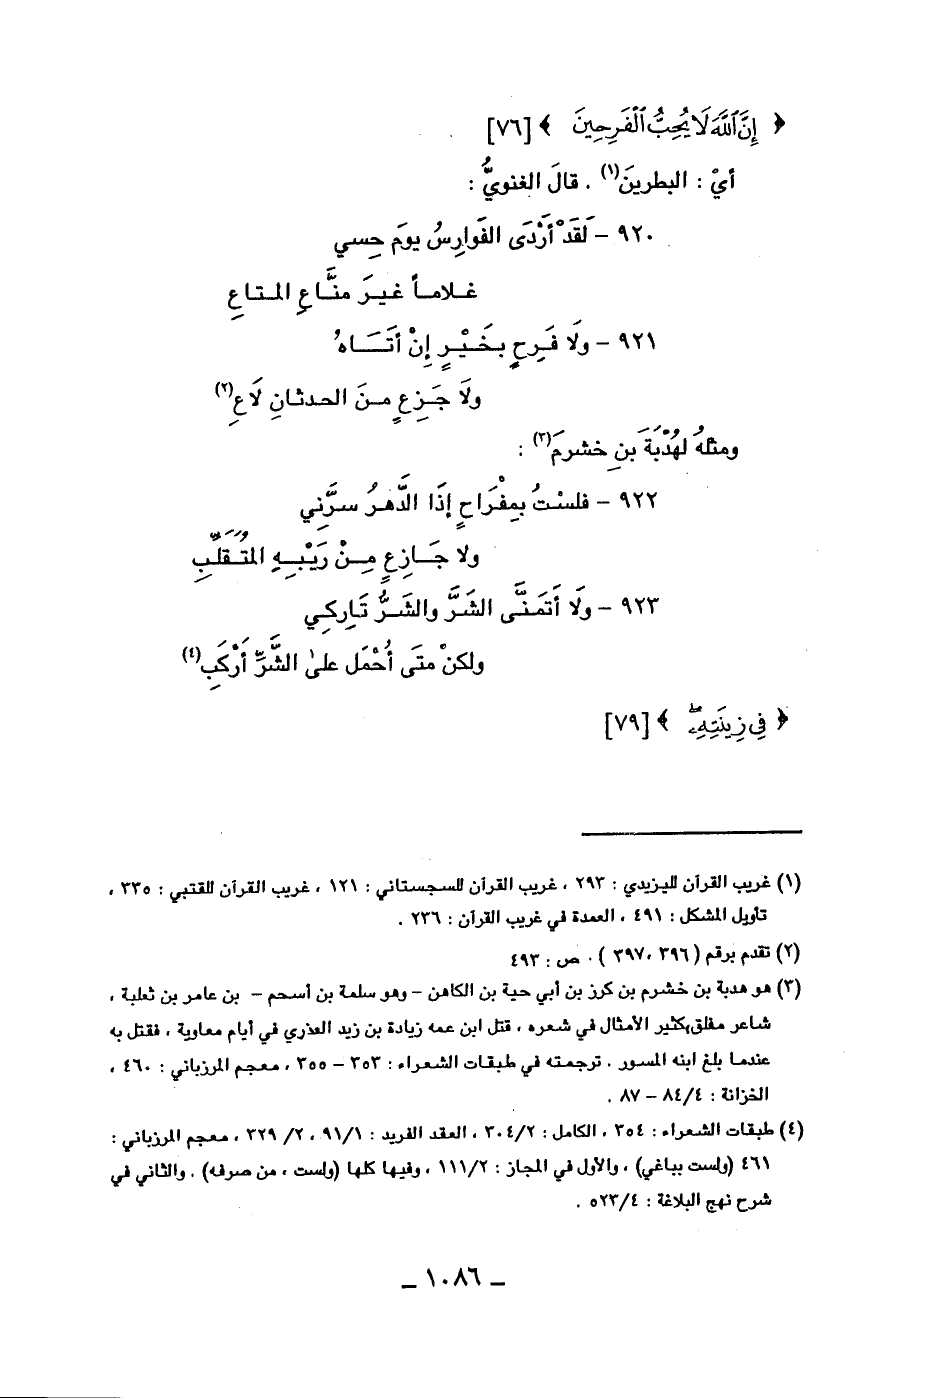 ﴿ إِنَّ ٱللَّهَ لَا يُحِبُّ ٱلْفَرِحِينَ ﴾ [٧٦]
أيْ : البطرينَ(١) . قالَ الغنويُّ :
٩٢٠ – لَقَدْ أرْدَى الفَوارِسُ يومَ حِسي
غلاماً غيرَ منَّاعِ المتاعِ
٩٢١ – ولَا فَرِحٍ بخَيْرٍ إِنْ أتَاهُ
ولَا جَزِعٍ منَ الحدثانِ لَاعِ(٢)
ومثلُه لهُدْبَةَ بنِ خشرمَ(٣) :
٩٢٢ – فلستُ بمِفْرَاحٍ إذَا الدَّهرُ سرَّنِي
ولا جَازِعٍ مِنْ رَيْبِهِ المُتَقلِّبِ
٩٢٣ – ولَا أتمَنَّى الشَّرَّ والشَرُّ تَارِكِي
ولكنْ متَى أُحْمَل علىٰ الشَّرِّ أرْكَبِ(٤)
﴿ فِي زِينَتِهِۦ ۖ ﴾ [٧٩]
(١) غريب القرآن لليزيدي : ٢٩٣ ، غريب القرآن للسجستاني : ١٢١ ، غريب القرآن للقتبي : ٣٣٥ ،
تأويل المشكل : ٤٩١ ، العمدة في غريب القرآن : ٢٣٦ .
(٢) تقدم برقم ( ٣٩٦ ،٣٩٧ ) . ص : ٤٩٣
(٣) هو هدبة بن خشرم بن كرز بن أبي حية بن الكاهن – وهو سلمة بن أسحم – بن عامر بن ثعلبة ،
شاعر مفلق كثير الأمثال في شعره ، قتل ابن عمه زيادة بن زيد العذري في أيام معاوية ، فقتل به
عندما بلغ ابنه المسور . ترجمته في طبقات الشعراء : ٣٥٣ – ٣٥٥ ، معجم المرزباني : ٤٦٠ ،
الخزانة : ٨٤/٤ – ٨٧ .
(٤) طبقات الشعراء : ٣٥٤ ، الكامل : ٣٠٤/٢ ، العقد الفريد : ٩١/١ ، ٢/ ٣٢٩ ، معجم المرزباني :
٤٦١ (ولست بباغي) ، والأول في المجاز : ١١١/٢ ، وفيها كلها (ولست ، من صرفه) . والثاني في
شرح نهج البلاغة : ٥٢٣/٤ .
– ١٠٨٦ –